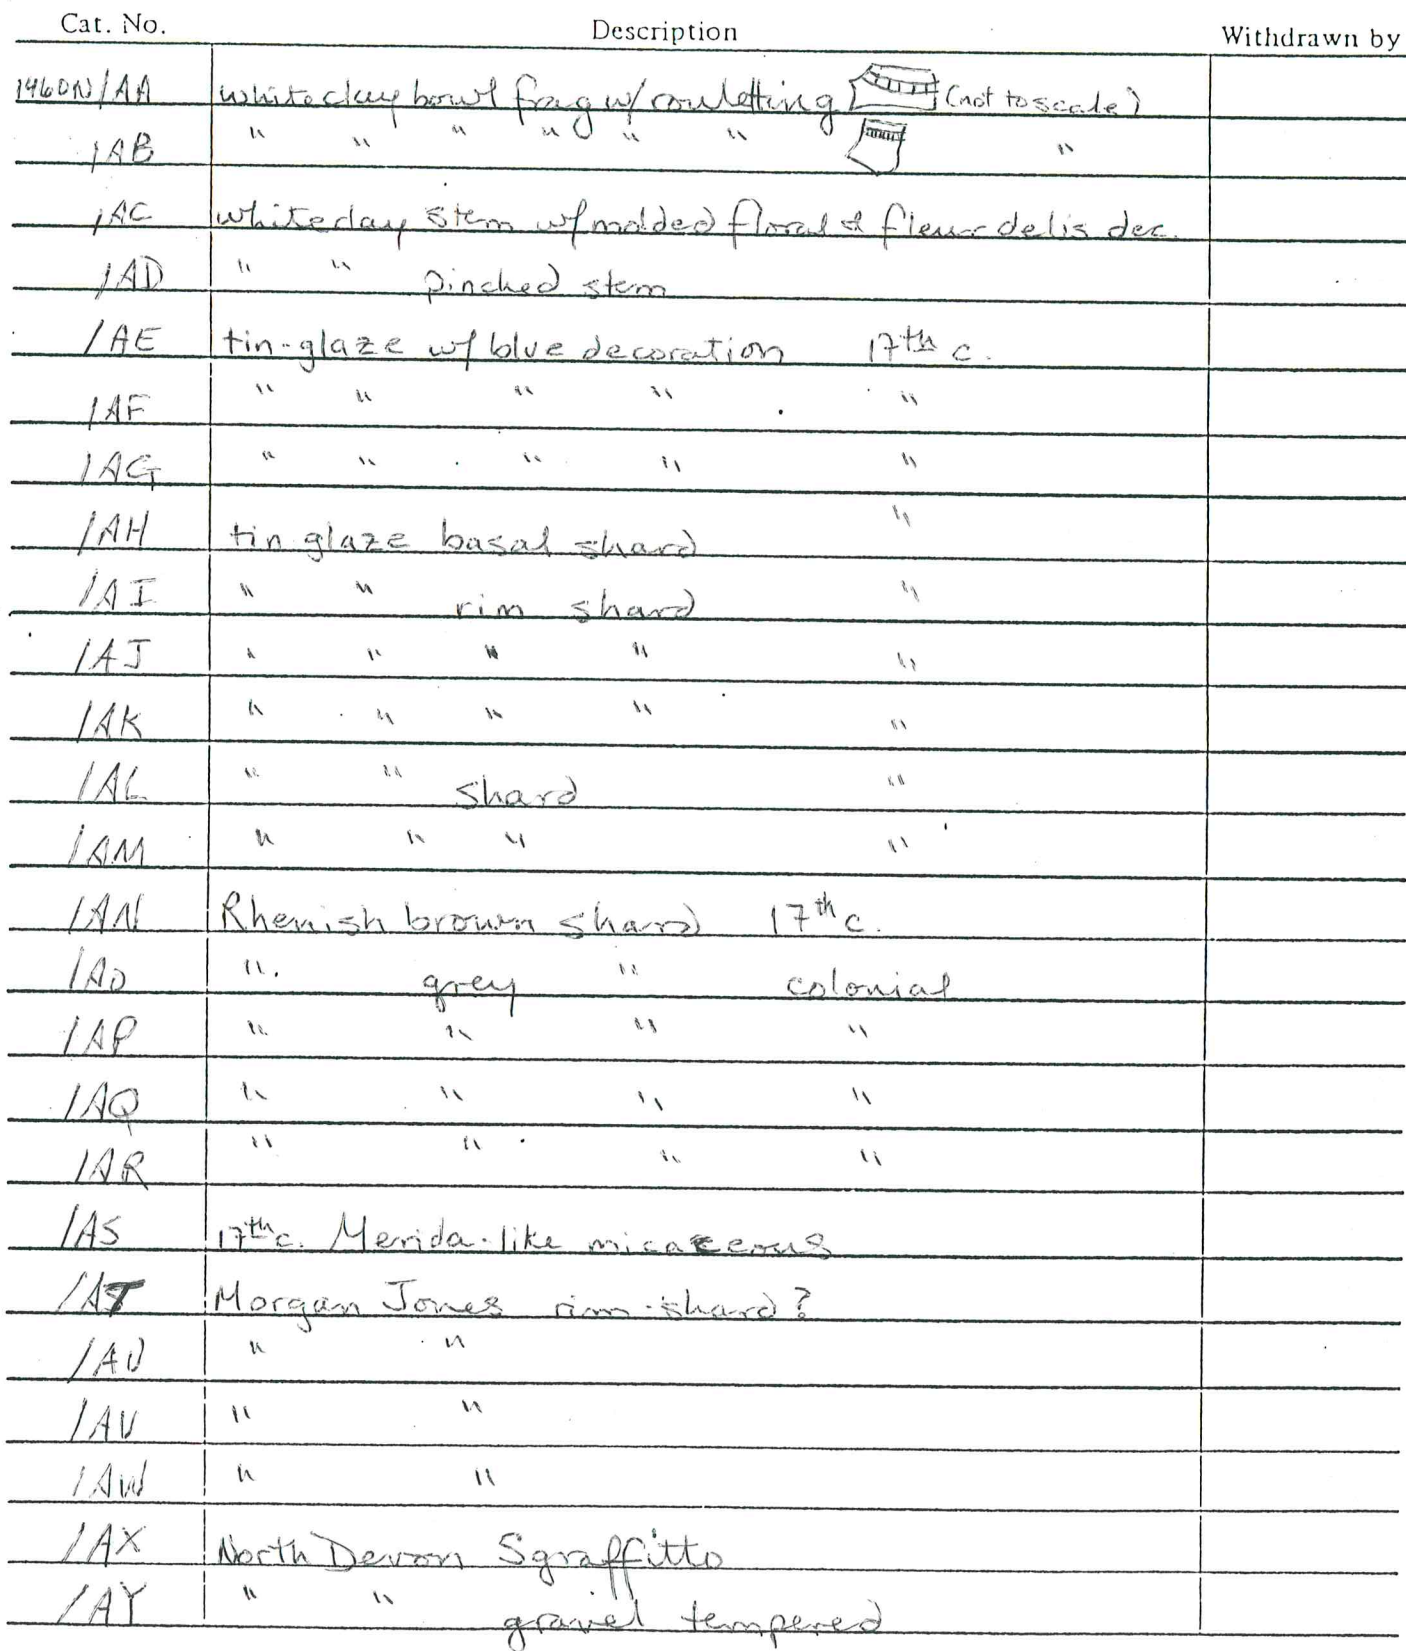 Cat. No. Description Withdrawn by
1460N/AA white clay bowl frag w/ rouletting (not to scale)
/AB " " " " " " "
/AC white clay stem w/ molded floral & fleur delis dec.
/AD " " pinched stem
/AE tin-glaze w/ blue decoration 17th c.
/AF " " " " "
/AG " " " " "
/AH tin glaze basal shard "
/AI " " rim shard "
/AJ " " " " "
/AK " " " " "
/AL " " shard "
/AM " " " "
/AN Rhenish brown shard 17th c.
/AO " grey " colonial
/AP " " " "
/AQ " " " "
/AR " " " "
/AS 17th c. Merida-like micaceous
/AT Morgan Jones rim shard?
/AU " "
/AV " "
/AW " "
/AX North Devon Sgraffitto
/AY " " gravel tempered